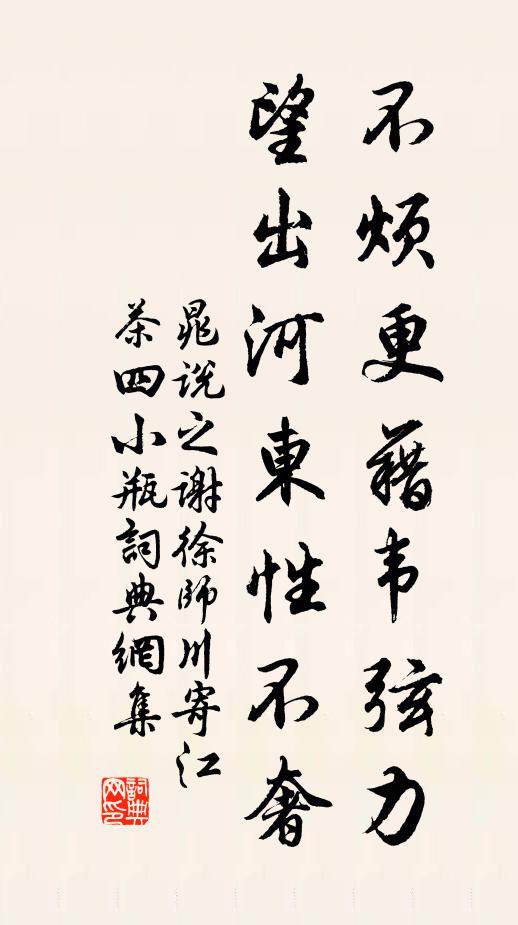 不烦更藉韦弦力
望出河東性不奢
晁说之谢徐師川寄江
茶四小瓶詞典網集
詞典网印